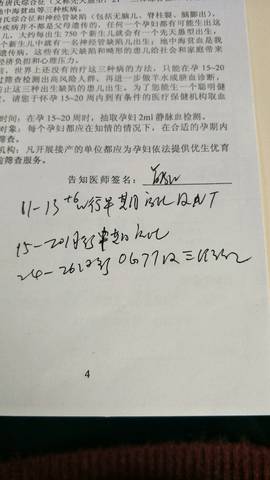 查唐氏综合征(又称先天愚型,21
地中海贫血等三种疾病。
氏综合征和神经管缺陷(包括无脑儿、脊柱裂、脑膨出),
疾病并不都是父母遗传的,任何一个孕妇都有可能生出这
儿,大约每出生 750 个新生儿就会有一个先天愚型出生,
个新生儿中就有一名神经管缺陷儿出生;地中海贫血是我
遗传病,这些有先天缺陷和畸形的患儿给社会和家庭带来
经济负担和心理压力。
前,世界上还没有治疗这三种病的方法,只能在孕 15~20
过筛查检测出高风险人群,再进一步做羊水或脐血诊断,
防止这三种出生缺陷的患儿出生。为了您能生一个聪明健
宝,请您于怀孕 15~20 周内到有条件的医疗保健机构取血

时间:在孕 15~20 周时,抽取孕妇 2ml 静脉血检测。
对象:每个孕妇都应在知情的情况下,在合适的孕期内
筛查。
机构:凡开展接产的单位都应为孕妇依法提供优生优育
前筛查服务。
告知医师签名:
11-13+6 行早期 及NT
15-20周
24-26周 OGTT及三
4